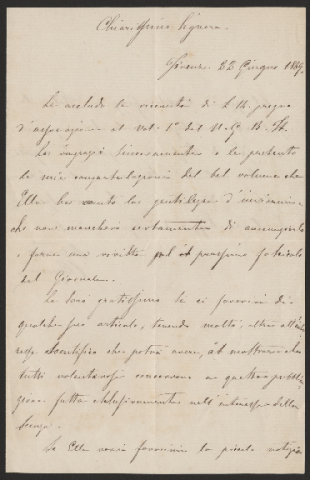 Chiarissimo Signore.
Firenze 22 Giugno 1889.
Le accludo la ricevuta di L. 12. prezzo
d'associazione al Vol. 1° del N. G. B. It.
La ringrazio sinceramente e le presento
le mie congratulazioni del bel volume che
Ella ha avuto la gentilezza d'inviarmi e
che non mancherò certamente di annunziarlo
e farne una rivista pel prossimo fascicolo
del Giornale.
Le sarò gratissimo se ci favorirà di
qualche suo articolo, tenendo molto, oltre all'inte
resse scientifico che potrà avere, a mostrare che
tutti volenterosi concorrono a questa pubbli
cazione fatta esclusivamente nell'interesse della
Se Ella vorrà favorirmi la piccola notizia